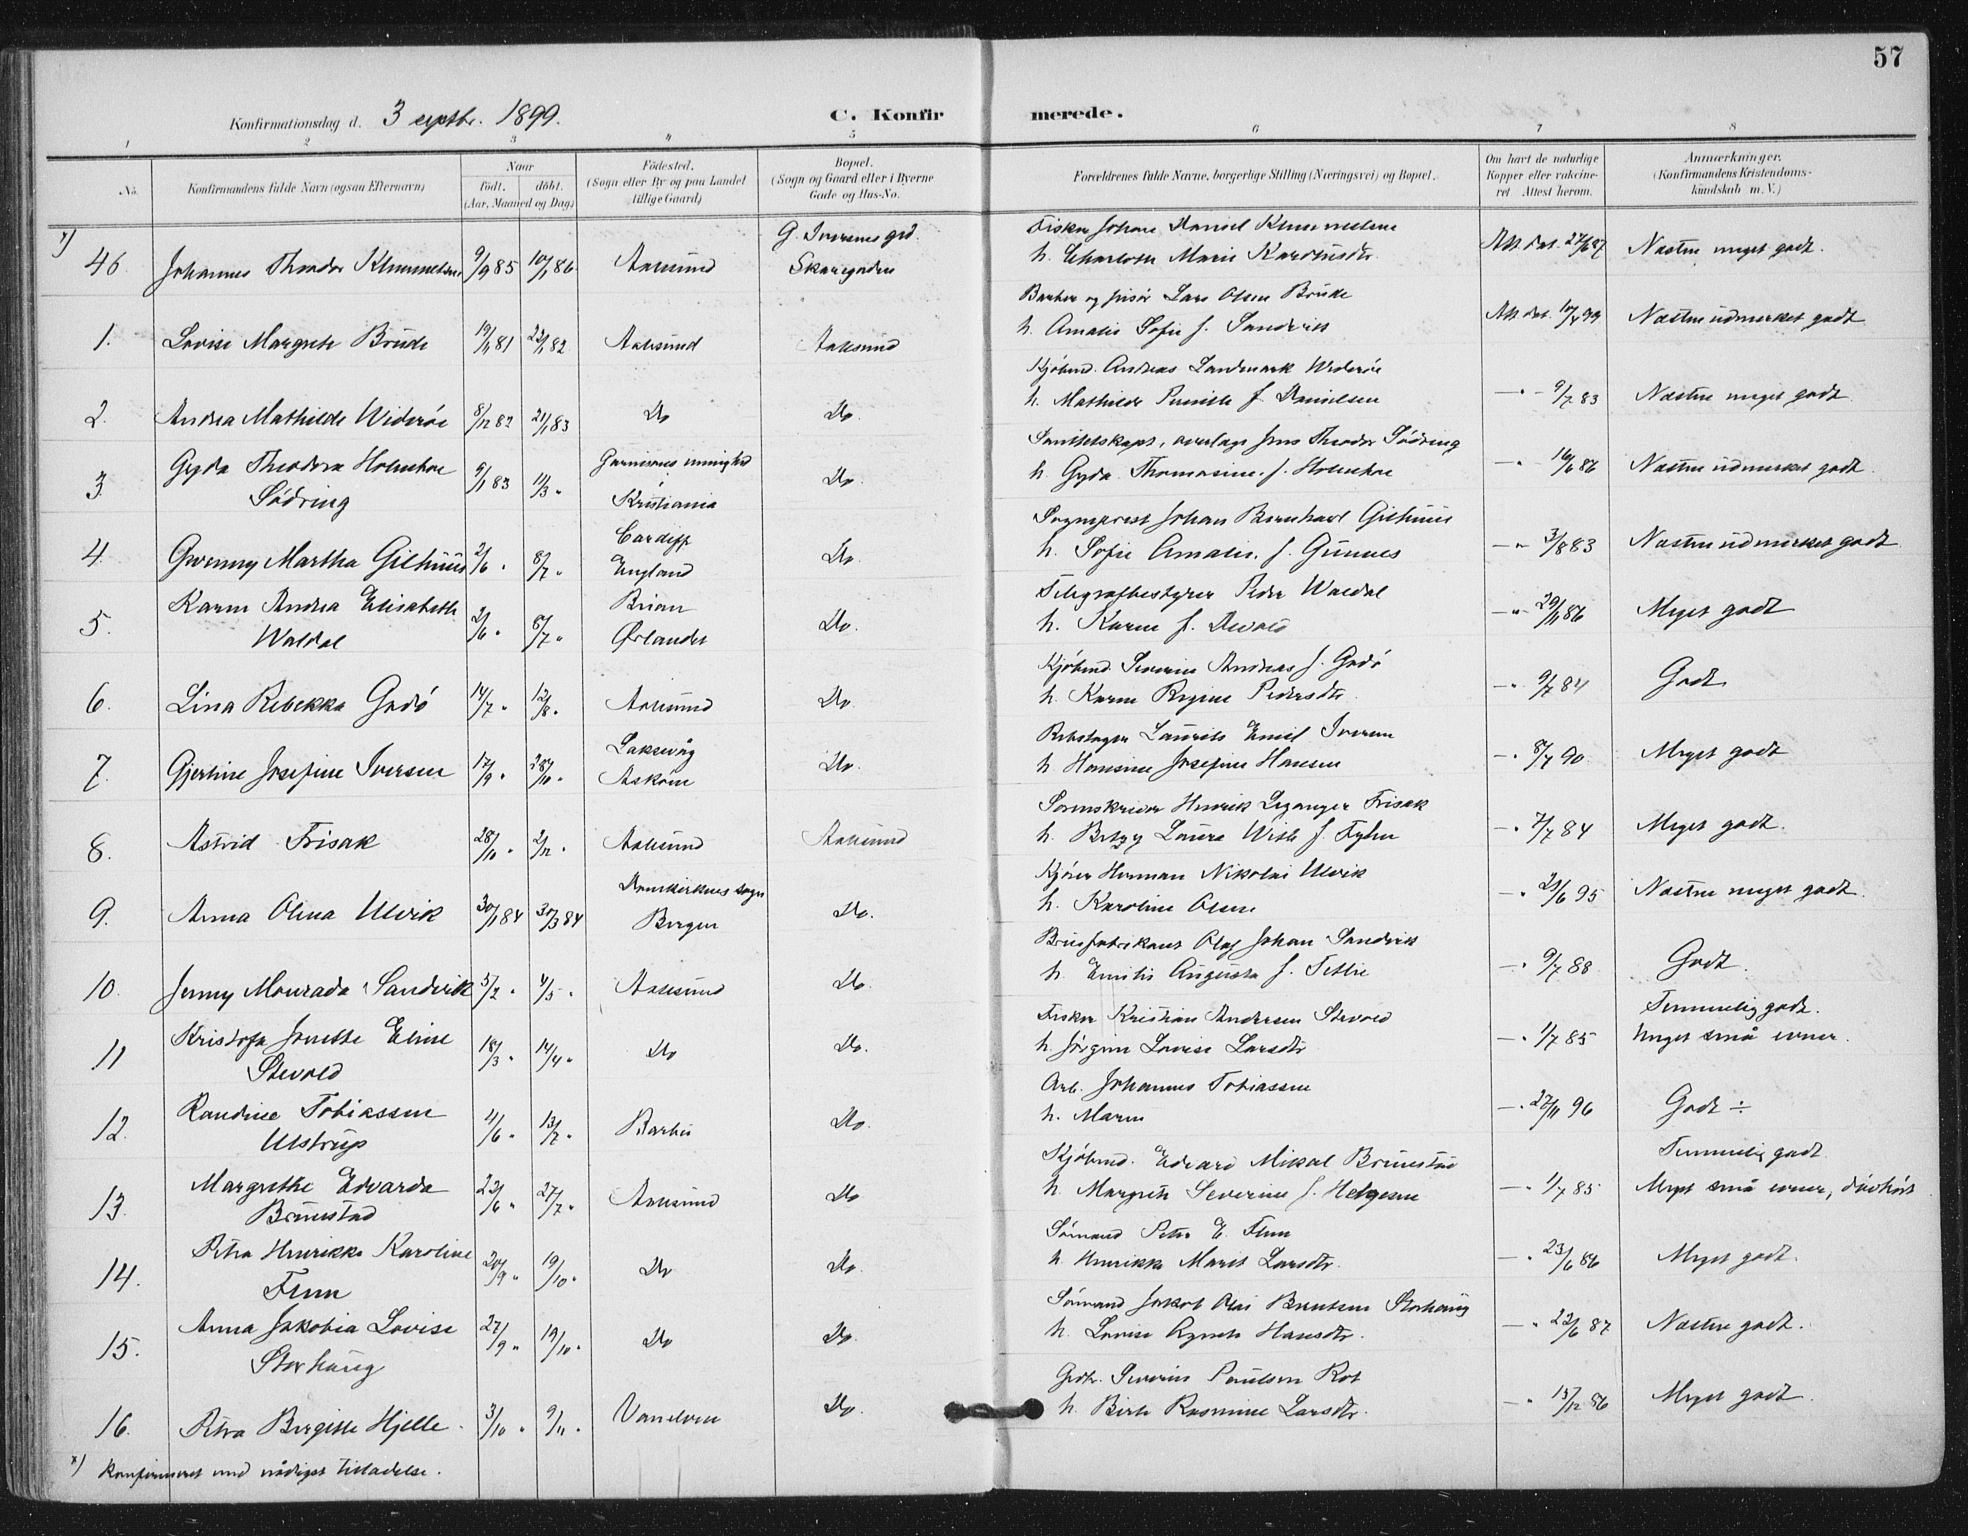 57
Konfirmationsdag d. 3 septbr. 1899.
C. Konfirmerede.
1 2 3 4 5 6 7 8
No. Konfirmandens fulde Navn (ogsaa Efternavn) Naar født. døbt. (Aar, Maaned og Dag)
Födested. (Sogn eller By og paa Landet tillige Gaard)
Bopæl. (Sogn og Gaard eller i Byerne Gade og Hus-No.
Forældrenes fulde Navne, borgerlige Stilling (Næringsvei) og Bopæl.
Om havt de naturlige Kopper eller vakcineret Attest herom.
Anmærkninger. (Konfirmandens Kristendomskundskab m. V.)
x) G. Iversens grd. Fisker Johan Daniel
46. Johannes Theodor 9/9 85 10/1 86 Aalesund Skaregaden h. Charlotte Marie Att. dat. Næsten meget godt.
Barber og frisør Lars Olsen Brude
1. Lovise Margrete Brude 19/11 81 22/1 82 Aalesund Aalesund h. Amalie Sofie f. Sandvik Att. dat. Næsten udmerket godt
Kjøbmd. Andreas Landmark Widerøe
2. Andrea Mathilde Widerøe 8/12 82 21/1 83 Do Do. h. Mathilde f. Danielsen —"— 9/7 83 Næsten meget godt
Gyda Theodora Holmboe Garnisons menighed Sanitetskapt., overlæge Jens Theodor Södring
3. Södring 9/1 83 11/3 " i Kristiania Do. h. Gyda Thomasine f. Holmboe —" 16/6 86 Næsten udmerket godt
Cardiff Sogneprest Johan Bernhard Gilhuus
4. Gwenny Martha Gilhuus 2/6 " 8/7 " England Do h. Sofie Amalie f. Gunnes —" 3/8 83 Næsten udmerket godt
Karen Andrea Elisabeth Brian Telegrafbestyrer Peder Waldal
5. Waldal 2/6 " 8/7 " Ørlandet Do. h. Karen f. Devold —"— 29/11 86 Meget godt
Kjøbmd Severin Andreas J. Godö
6. Lina Rebekka Godö 14/7 " 12/8 " Aalesund Do. h. Karen Regine Pedersdtr. —" 9/7 84 Godt
Laksevåg Rebslager Laurits Emil Iversen
7. Gjertine Josefine Iversen 17/9 " 28/10 " Askøen Do. h. Hansine Josefine Hansen —" 8/7 90 Meget godt
Sorenskriver Henrik Leganger Frisak
8. Astrid Frisak 28/10 " 2/12 " Aalesund Aalesund h. Betzy Laura With f. Fyhn —" 7/7 84 Meget godt.
Domkirkens sogn Kjører Herman Nikolai Ulvik
9. Anna Olina Ulvik 30/1 84 30/3 84 Bergen Do. h. Karoline Olsen —" 25/6 95 Næsten meget godt.
Brusfabrikant Olaf Johan Sandvik
10. Jenny Monrada Sandvik 5/2 " 4/5 " Aalesund Do. h. Emilie Augusta f. —" 9/7 88 Godt.
Kristofa Jonette Eline Fisker Kristian Andersen Stevold Temmelig godt.
11 Stevold 18/3 " 14/4 " Do Do. h. Jörgine Lovise Larsdtr —" 1/7 85 Meget små evner.
Randine Tobiassen Arb. Johannes Tobiassen
12. Ulstrup 11/6 " 13/7 " Barbu Do. h. Maren —" 27/11 96 Godt ÷
Margrethe Edvarda Kjøbmd. Edvard Mikal Brunstad Temmelig godt
13. Brunstad 22/6 " 27/7 " Aalesund Do h. Margrete Severine f. Helgesen —" 1/7 85 Meget små evner,
Petra Henrikke Karoline Sømand Peter E. Flem
14. Flem 20/9 " 19/10 " Do Do. h. Henrikke Marit Larsdtr. —" 23/6 86 Meget godt.
Anna Jakobia Lovise Sømand Jakob Olai Berntsen Storhaug
15. Storhaug 27/9 " 19/10 " Do Do. h. Lovise Agnete Hansdtr. —" 22/6 87 Næsten godt.
Grdbr. Severin Paulsen Rot
16. Petra Birgitte Hjelle 3/10 " 9/11 " Vanelven Do. h. Birte Rasmine Larsdtr. —" 15/12 86 Meget godt.
x) Konfirmeret med nådigst tilladelse.